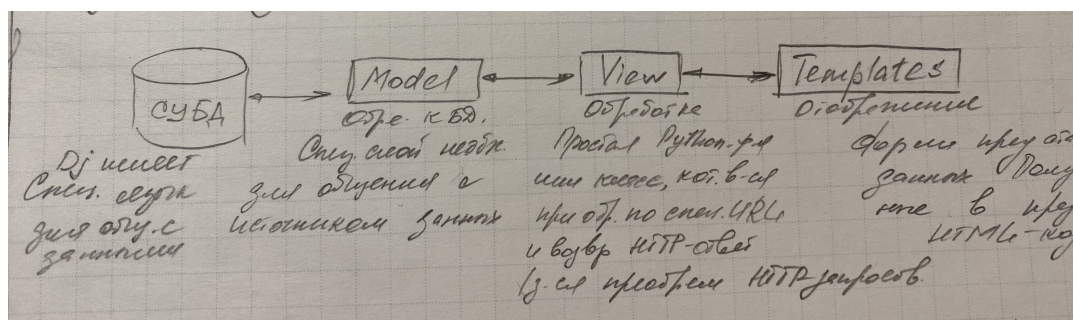 СУБД
Dj имеет
Спец. язык
для общ. с
данными
Model
Обращ. к БД.
Спец. слой необх.
для общения с
источником данных
View
Обработка
Простая Python-ф-я
или класс, кот. в-ся
при обр. по спец. URL
и возвр HTTP-ответ
преобразов HTTP запросов.
Templates
Отображение
Форм пред
данных Полу
в пред
HTML-код